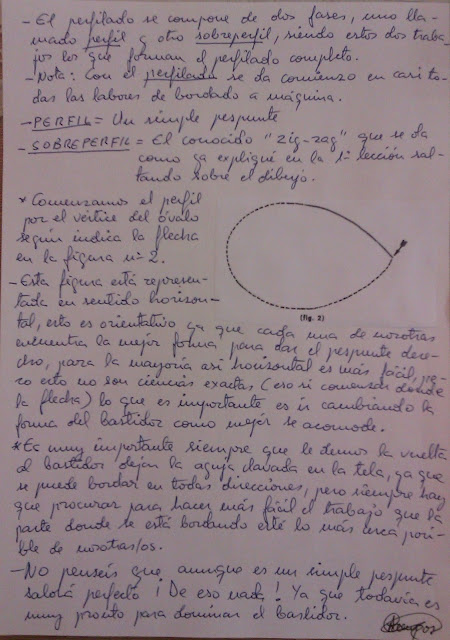 - El perfilado se compone de dos fases, uno lla-
mado perfil y otro sobreperfil, siendo estos dos traba-
jos los que forman el perfilado completo.
- Nota: Con el perfilado se da comienzo en casi to-
das las labores de bordado a máquina.
- PERFIL = Un simple pespunte
- SOBREPERFIL = El conocido "zig-zag" que se da
como ya expliqué en la 1ª lección sal-
tando sobre el dibujo.
* Comenzamos el perfil
por el vértice del óvalo
según indica la flecha
en la figura nº 2.
- Esta figura está represen-
tada en sentido horison-
tal, esto es orientativo ya que cada una de nosotras
encuentra la mejor forma para dar el pespunte dere-
cho, para la mayoría así horisontal es más fácil, pe-
ro esto no son ciencias exactas, (eso si comenzar donde
la flecha) lo que es importante es ir cambiando la
forma del bastidor como mejor se acomode.
* Es muy importante siempre que le demos la vuelta
al bastidor dejar la aguja clavada en la tela, ya que
se puede bordar en todas direcciones, pero siempre hay
que procurar para hacer más fácil el trabajo que la
parte donde se está bordando esté lo más cerca posi-
ble de nosotras/os.
- No penseis que aunque es un simple pespunte
saldrá perfecto ¡De eso nada! Ya que todavía es
muy pronto para dominar el bastidor.
(fig. 2)